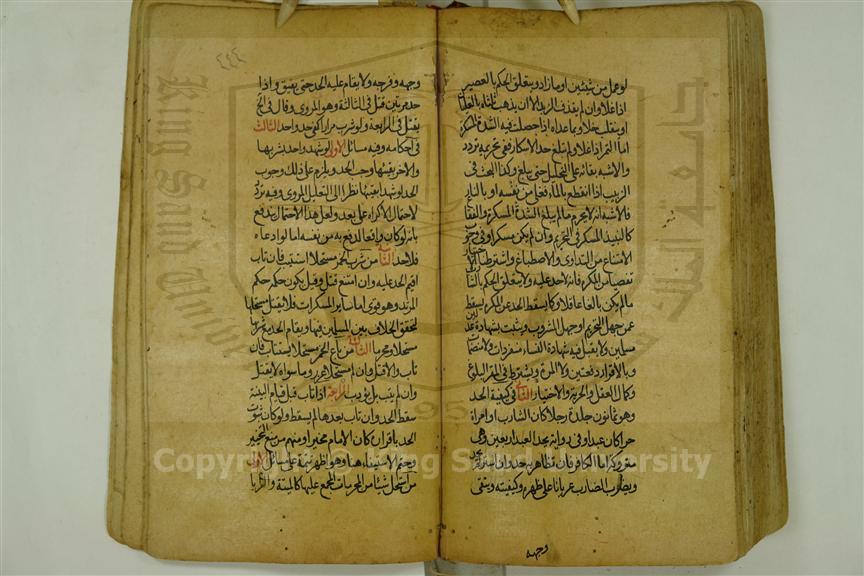 لو عمل من شيئين او ما زاد ويتعلق الحكم بالعصير
اذا غلا وان لم يقذف الزبد الا ان يذهب ثلثاه بالغليان
او ينقلب خلا وبما عداه اذا حصلت فيه الشدة المسكرة
اما التمر اذا غلا ولم يبلغ حد الاسكار ففي تحريمه تردد
والاشبه بقاؤه على التحليل حتى يبلغ وكذا البحث في
الزبيب اذا انقع بالماء فغلى من نفسه او بالنار
فالاشبه انه لا يحرم ما لم يبلغ الشدة المسكرة
كالنبيذ المسكر في التحريم وان لم يكن مسكرا وفي وجوب
الامتناع من التداوي والاصطباغ واشترطنا الاختيار
تفصيا من المكره فانه لا حد عليه ولا يتعلق الحكم بالشارب
ما لم يكن بالغا عاقلا وكما يسقط الحد عن المكره يسقط
عمن جهل التحريم او جهل المشروب ويثبت بشهادة عدلين
مسلمين ولا يقبل فيه شهادة النساء منفردات ولا منضمات
وبالاقرار دفعتين ولا المرة ويشترط في المقر البلوغ
وكمال العقل والحرية والاختيار الثاني في كيفية الحد
وهو ثمانون جلدة رجلا كان الشارب او امراة
حرا كان عبدا وفي رواية يحد العبد اربعين وهي
متروكة اما الكافر فان تظاهر به حد وان استتر لم يحد
ويضرب الشارب عريانا على ظهره وكتفيه ويتقى
وجهه
٤٤٤
وجهه وفرجه ولا يقام عليه الحد حتى يفيق واذا
حد مرتين قتل في الثالثة وهو المروي وقال في الخلاف
يقتل في الرابعة ولو شرب مرارا كفى حد واحد الثالث
في احكامه وفيه مسائل الاولى لو شهد واحد بشربها
والاخر بقيئها وجب الحد ويلزم على ذلك وجوب
الحد لو شهدا بقيئها نظرا الى التعليل المروي وفيه تردد
لاحتمال الاكراه على بعد ولعل هذا الاحتمال يندفع
بانه لو كان واقعا لدفع به من نفسه اما لو ادعاه
فلا حد الثانية من شرب الخمر مستحلا استتيب فان تاب
اقيم الحد عليه وان امتنع قتل وقيل يكون حكمه حكم
المرتد وهو قوي اما سائر المسكرات فلا يقتل مستحلها
لتحقق الخلاف بين المسلمين فيها ويقام الحد مع شربها
مستحلا ومحرما الثالثة من باع الخمر مستحلا يستتاب فان
تاب والا قتل وان لم يكن مستحلا عزر وما سواه لا يقتل
وان لم يتب بل يؤدب الرابعة اذا تاب قبل قيام البينة
سقط الحد وان تاب بعدها لم يسقط ولو كان ثبوت
الحد باقراره كان الامام مخيرا ومنهم من منع التخيير
وحتم الاستيفاء هنا وهو اظهر تتمة على مسائل الاولى
من استحل شيئا من المحرمات المجمع عليها كالميتة والربا
Copyright © King Saud University
جامعة الملك
King Saud University